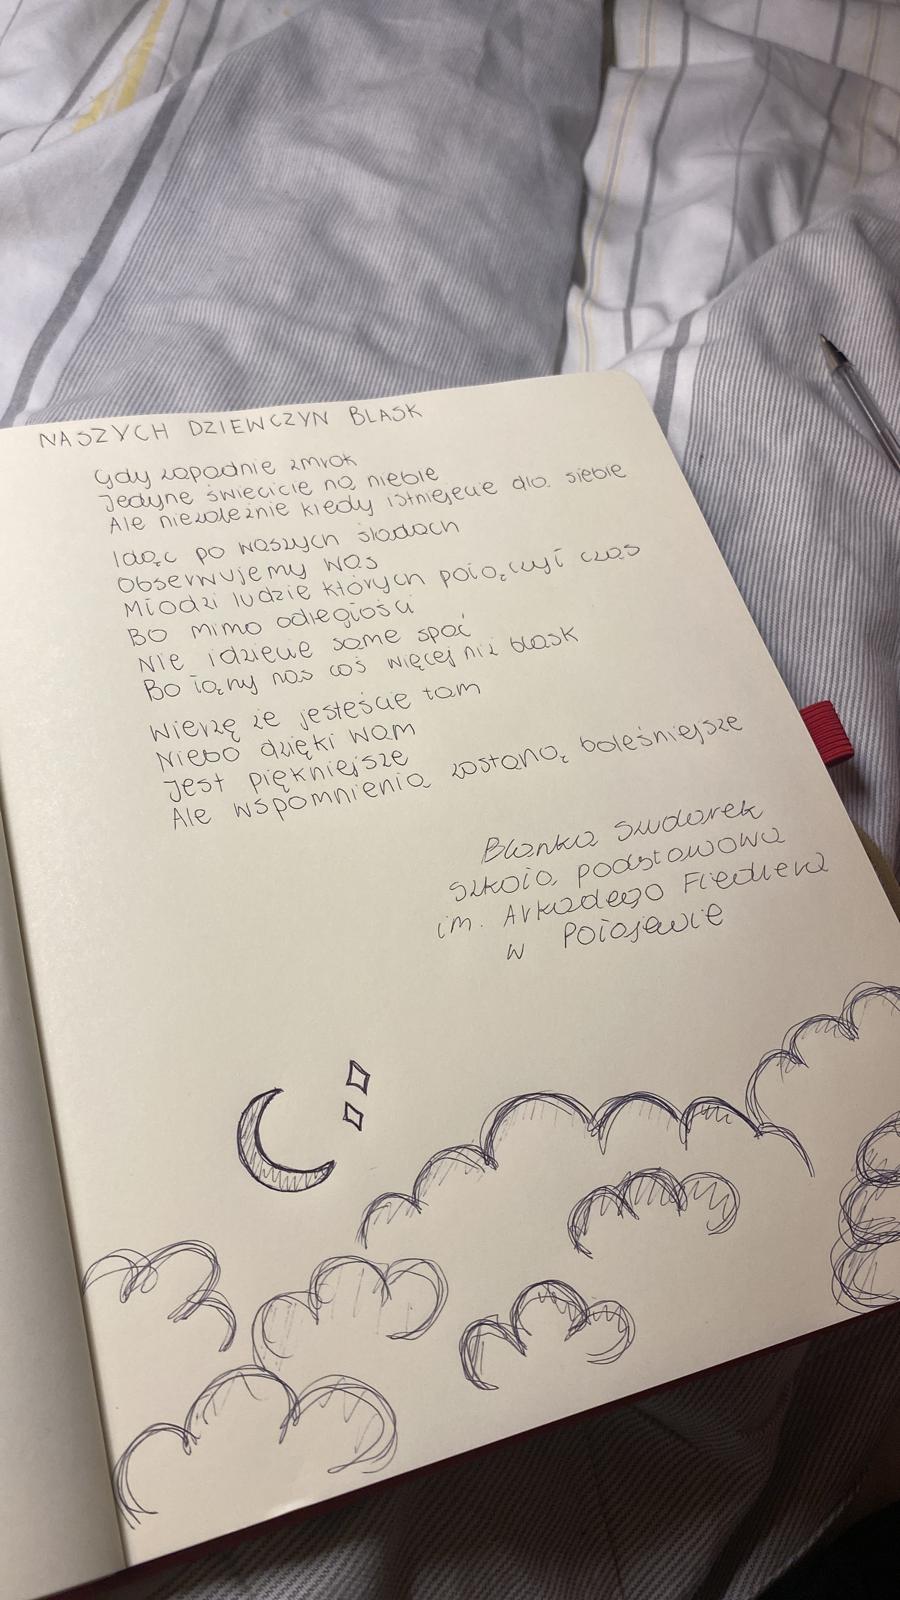 NASZYCH DZIEWCZYN BLASK
Gdy zapadnie zmrok
Jedyne świecicie na niebie
Ale niezależnie kiedy istniejecie dla siebie
Idąc po waszych śladach
Obserwujemy was
Młodzi ludzie których połączył czas
Bo mimo odległości
Nie idziecie same spać
Bo łączy nas coś więcej niż blask
Wierzę że jesteście tam
Niebo dzięki wam
Jest piękniejsze
Ale wspomnienia zostaną boleśniejsze
Blanka
Szkoła Podstawowa
im. Arkadego Fiedlera
w Połajewie